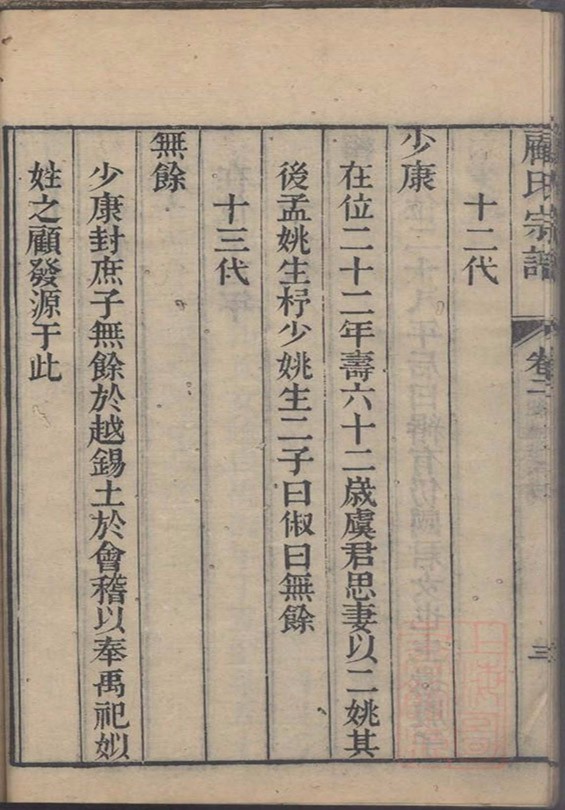 顧氏宗譜
卷二
三
十二代
少康
在位二十二年壽六十二歲虞君思妻以二姚其
後孟姚生杼少姚生二子曰俶曰無餘
十三代
無餘
少康封庶子無餘於越錫土於會稽以奉禹祀姒
姓之顧發源于此